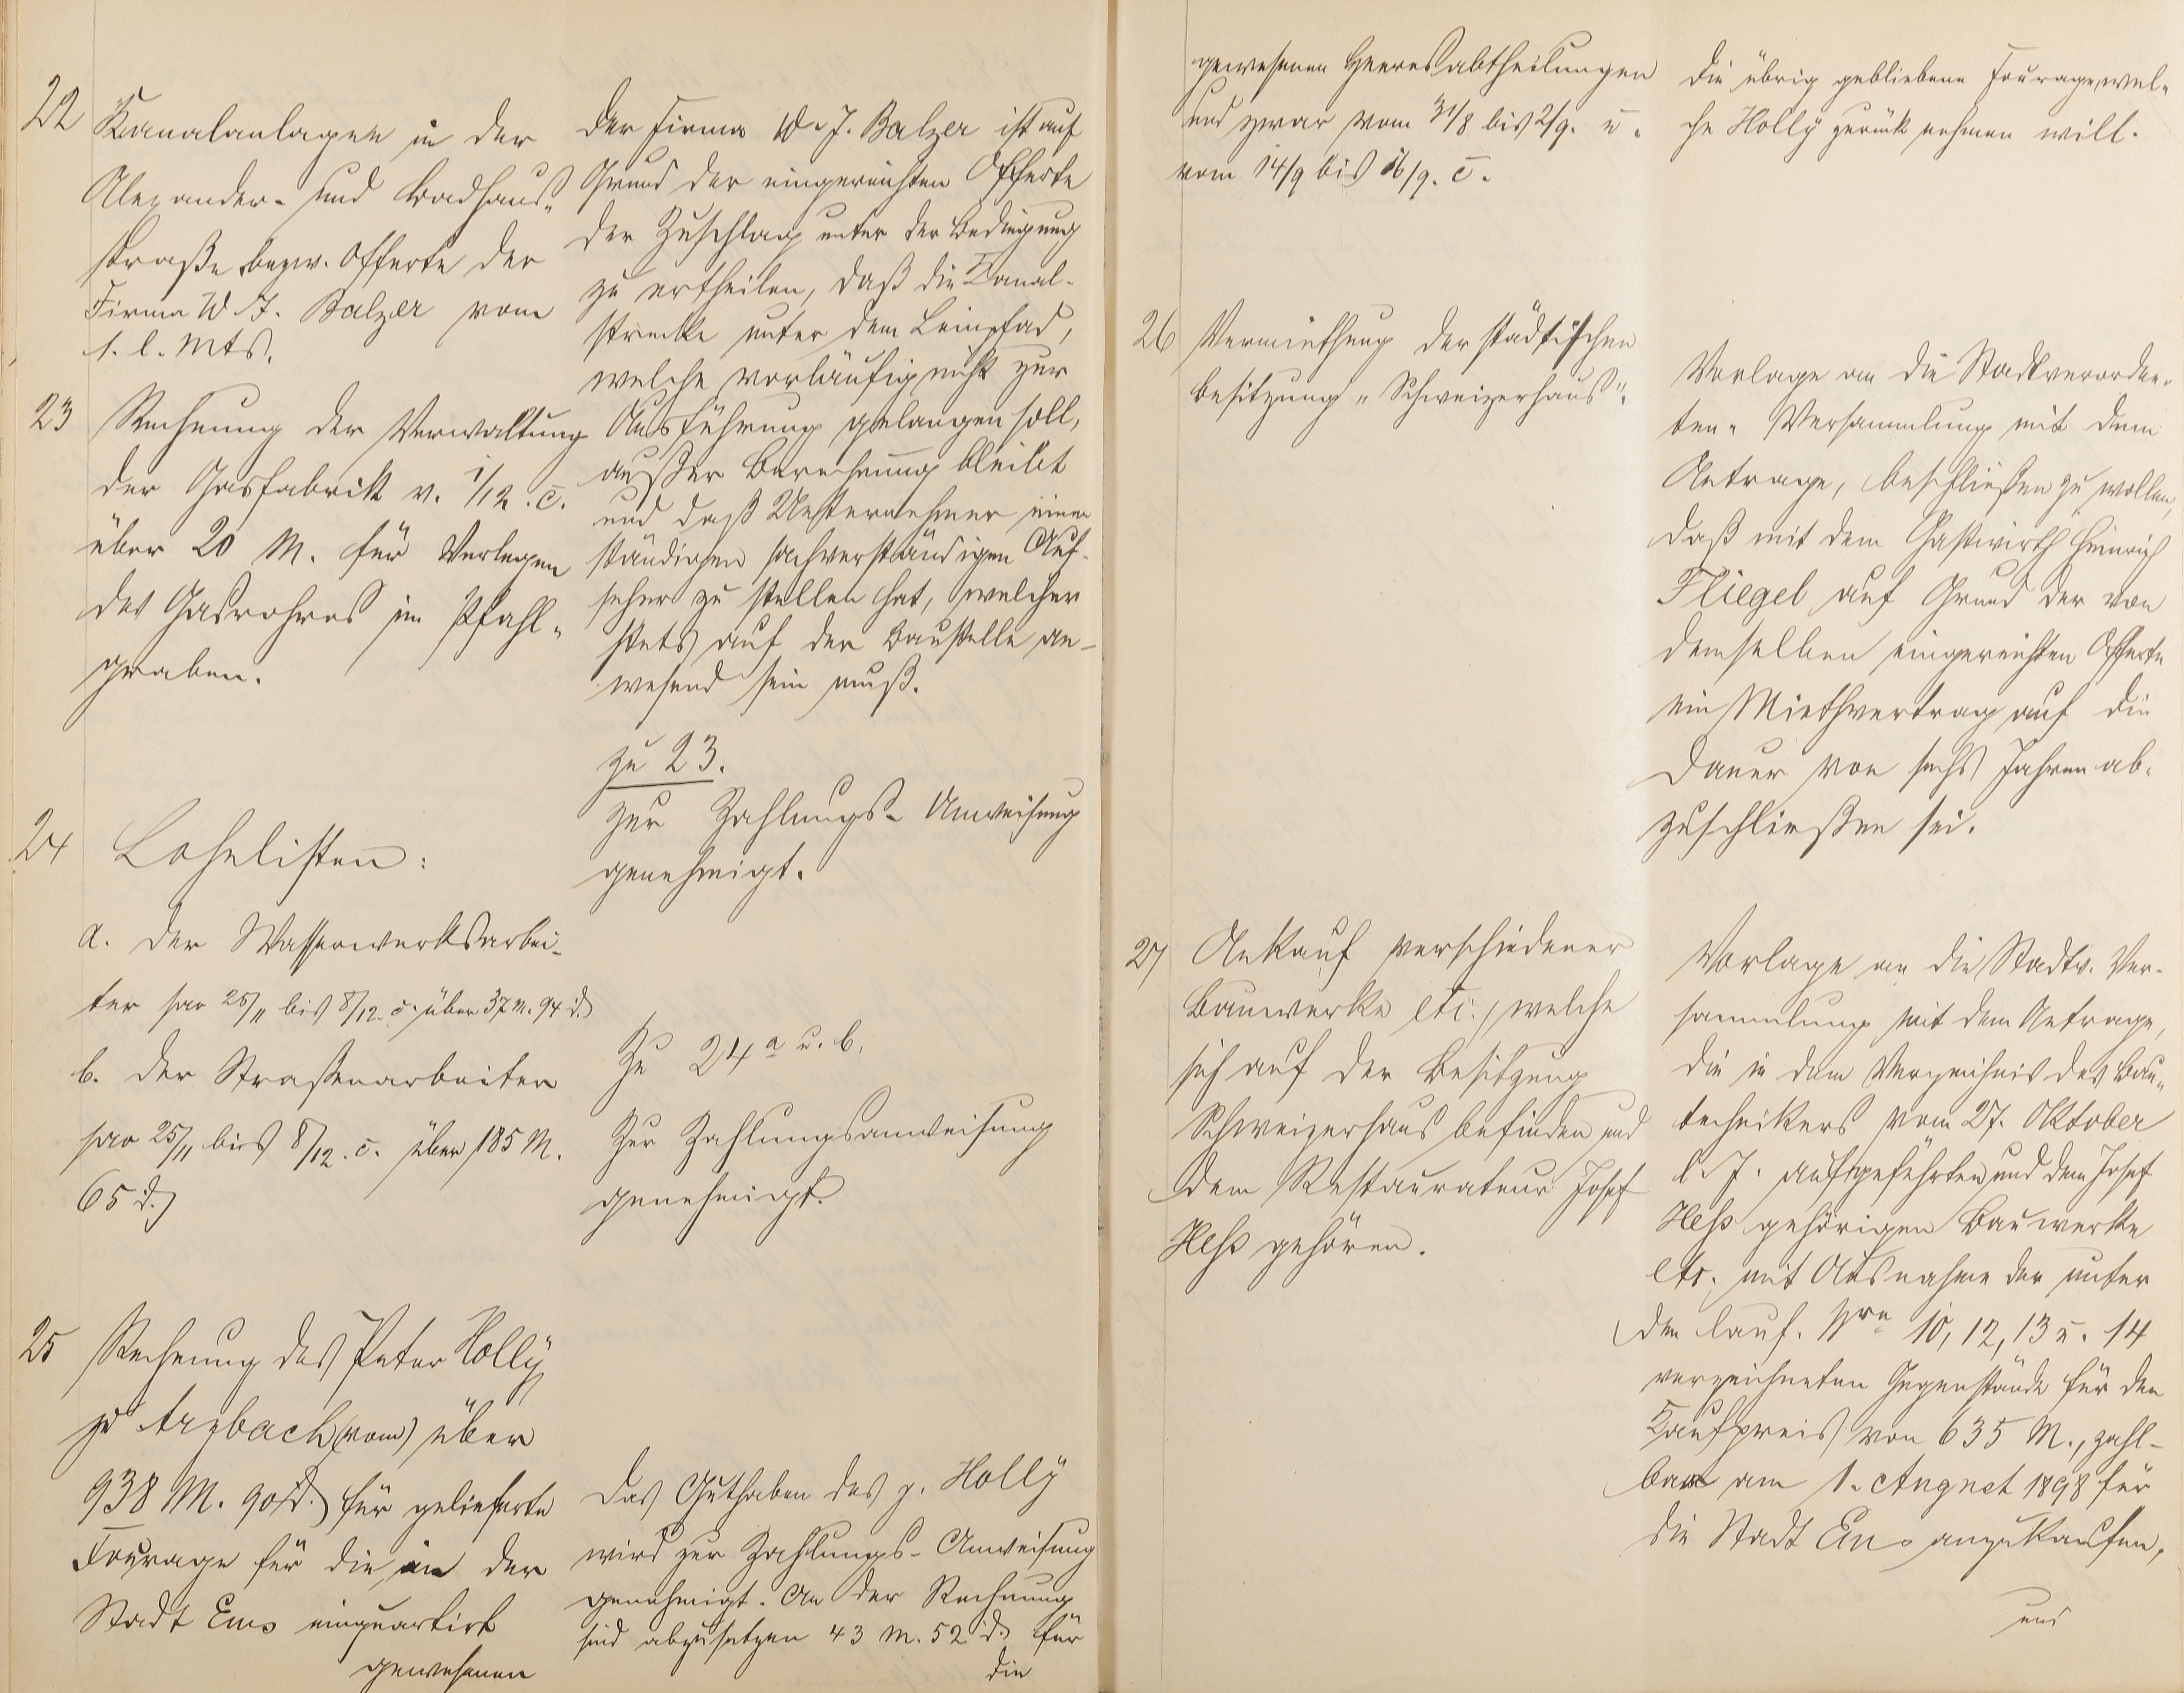 22
Kanalanlagen in der
Alexander- und Badhaus-
straße bezw. Offerte der
Firma W. J. Balzer vom
1. l. Mts.
der Firma W. J. Balzer ist auf
Grund der eingereichten Offerte
der Zuschlag unter der Bedingung
zu ertheilen, daß die Kanal-
strecke unter dem Leinpfad,
welche vorläufig nicht zur
Ausführung gelangen soll,
außer Berechnung bleibt
und daß Unternehmer einen
ständigen sachverständigen Auf-
seher zu stellen hat, welcher
stets auf der Baustelle an-
wesend sein muß.
23
Rechnung der Verwaltung
der Gasfabrik v. 1/12. c.
über 20 M. für Verlegen
des Gasrohres im Pfahl-
graben.
zu 23.
zur Zahlungs-Anweisung
genehmigt.
24
Lohnlisten:
a. der Wasserwerksarbei-
ter pro 25/11 bis 8/12. c. über 37 M. 94 d.
b. der Straßenarbeiter
pro 25/11 bis 8/12. c. über 185 M.
65 d.
Zu 24 a u. b.
Zur Zahlungsanweisung
genehmigt.
25
Rechnung des Peter Holly
zu Arzbach (vom) über
938 M. 90 d. für gelieferte
Fourage für die in der
Stadt Ems einquartirt
gewesenen
Das Guthaben des p. Holly
wird zur Zahlungs-Anweisung
genehmigt. An der Rechnung
sind abzusetzen 43 M. 52 d. für
die
gewesenen Heeresabtheilungen
und zwar vom 31/8 bis 2/9. u.
vom 14/9 bis 16/9. c.
die übrig gebliebene Fourage, wel-
che Holly zurück nehmen will.
26
Vermiethung der städtischen
Besitzung „Schweizerhaus".
Vorlage an die Stadtverordne-
ten-Versammlung mit dem
Antrage, beschließen zu wollen,
daß mit dem Gastwirth Heinrich
Fliegel auf Grund der von
demselben eingereichten Offerte
ein Miethvertrag auf die
Dauer von sechs Jahren ab-
zuschließen sei.
27
Ankauf verschiedener
Bauwerke etc., welche
sich auf der Besitzung
Schweizerhaus befinden und
dem Restaurateur Josef
Heß gehören.
Vorlage an die Stadtv. Ver-
sammlung mit dem Antrage,
die in dem Verzeichnis des Bau-
technikers vom 27. Oktober
l. J. aufgeführten, und dem Josef
Heß gehörigen Bauwerke
etc. mit Ausnahme der unter
den lauf. Nrn 10, 12, 13 u. 14
verzeichneten Gegenstände für den
Kaufpreis von 635 M., zahl-
bar am 1. August 1898 für
die Stadt Ems anzukaufen,
und